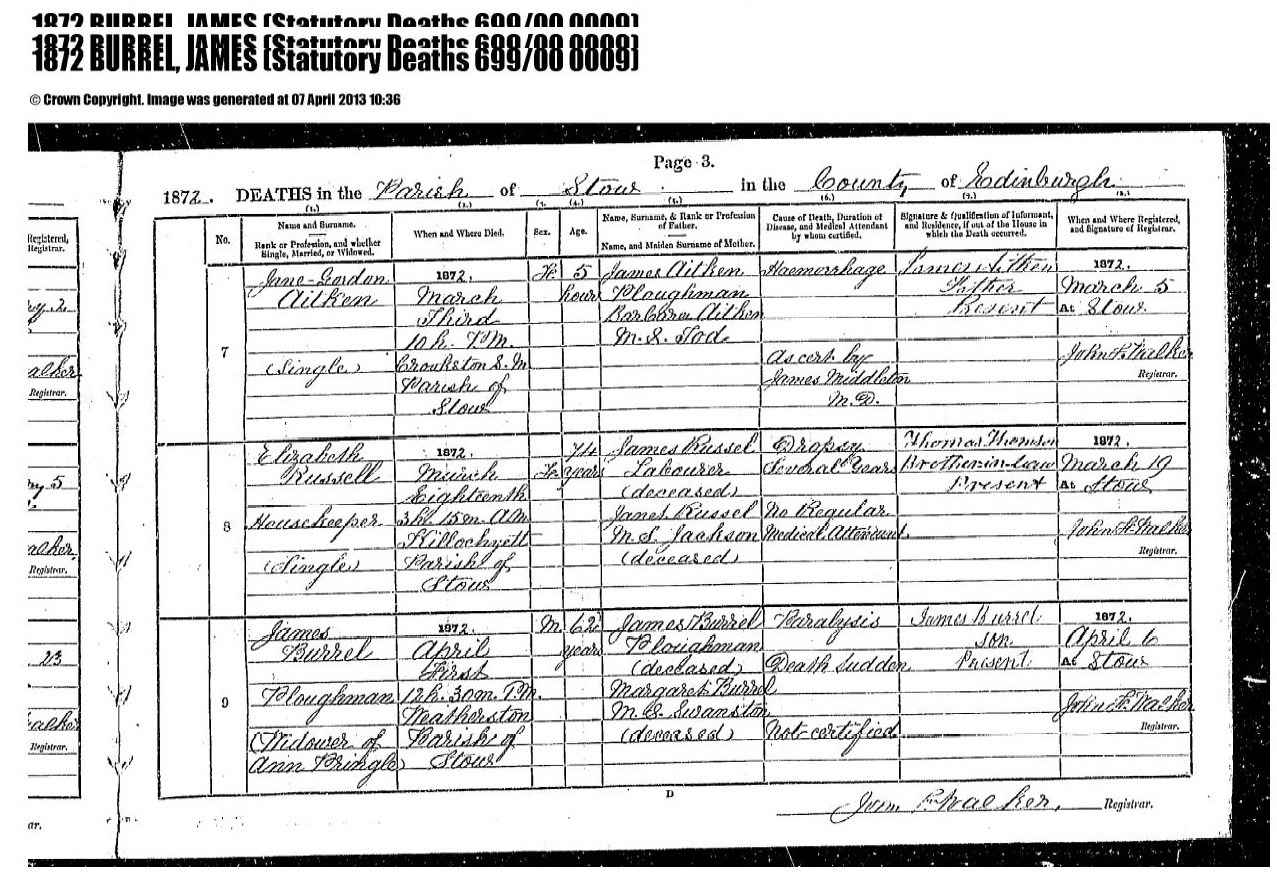 1872 BURREL, JAMES (Statutory Deaths 699/00 0009)
1872 BURREL, JAMES (Statutory Deaths 699/00 0009)
1872 BURREL, JAMES (Statutory Deaths 699/00 0009)
© Crown Copyright. Image was generated at 07 April 2013 10:36
Page 3.
1872. DEATHS in the Parish of Stow in the County of Edinburgh
(1.) (2.) (3.) (4.) (5.) (6.) (7.) (8.)
No.
Name and Surname.
Rank or Profession, and whether
Single, Married, or Widowed.
When and Where Died.
Sex.
Age.
Name, Surname, & Rank or Profession
of Father.
Name, and Maiden Surname of Mother.
Cause of Death, Duration of
Disease, and Medical Attendant
by whom certified.
Signature & Qualification of Informant,
and Residence, if out of the House in
which the Death occurred.
When and Where Registered,
and Signature of Registrar.
7
Jane Gordon
Aitken
(Single)
1872.
March
Third
10 h. P.M.
Crookston S. M.
Parish of
Stow
F.
5
hours
James Aitken
Ploughman
Barbara Aitken
M.S. Tod
Haemorrhage
As cert by
James Middleton
M.D.
James Aitken
Father
Present
1872.
March 5
At Stow
John F. Walker
Registrar.
8
Elizabeth
Russell
Housekeeper
(Single)
1872
March
Eighteenth
3 h. 15 m. A.M.
Killochyett
Parish of
Stow
F.
74
years
James Russel
Labourer
(deceased)
Janet Russel
M.S. Jackson
(deceased)
Dropsy
Several Years
No Regular
Medical Attendant
Thomas Thomson
Brother in Law
Present
1872.
March 19
At Stow
John F. Walker
Registrar.
9
James
Burrel
Ploughman
(Widower of
Ann Pringle)
1872.
April
First
12 h. 30 m. P.M.
Weatherston
Parish of
Stow
M.
62
years
James Burrel
Ploughman
(deceased)
Margaret Burrel
M.S. Swanston
(deceased)
Paralysis
Death Sudden
Not certified
James Burrel
Son
Present
1872.
April 6
At Stow
John F. Walker
Registrar.
D
John F. Walker, Registrar.
Registered,
Registrar.
Registrar.
5
Registrar.
23
Registrar.